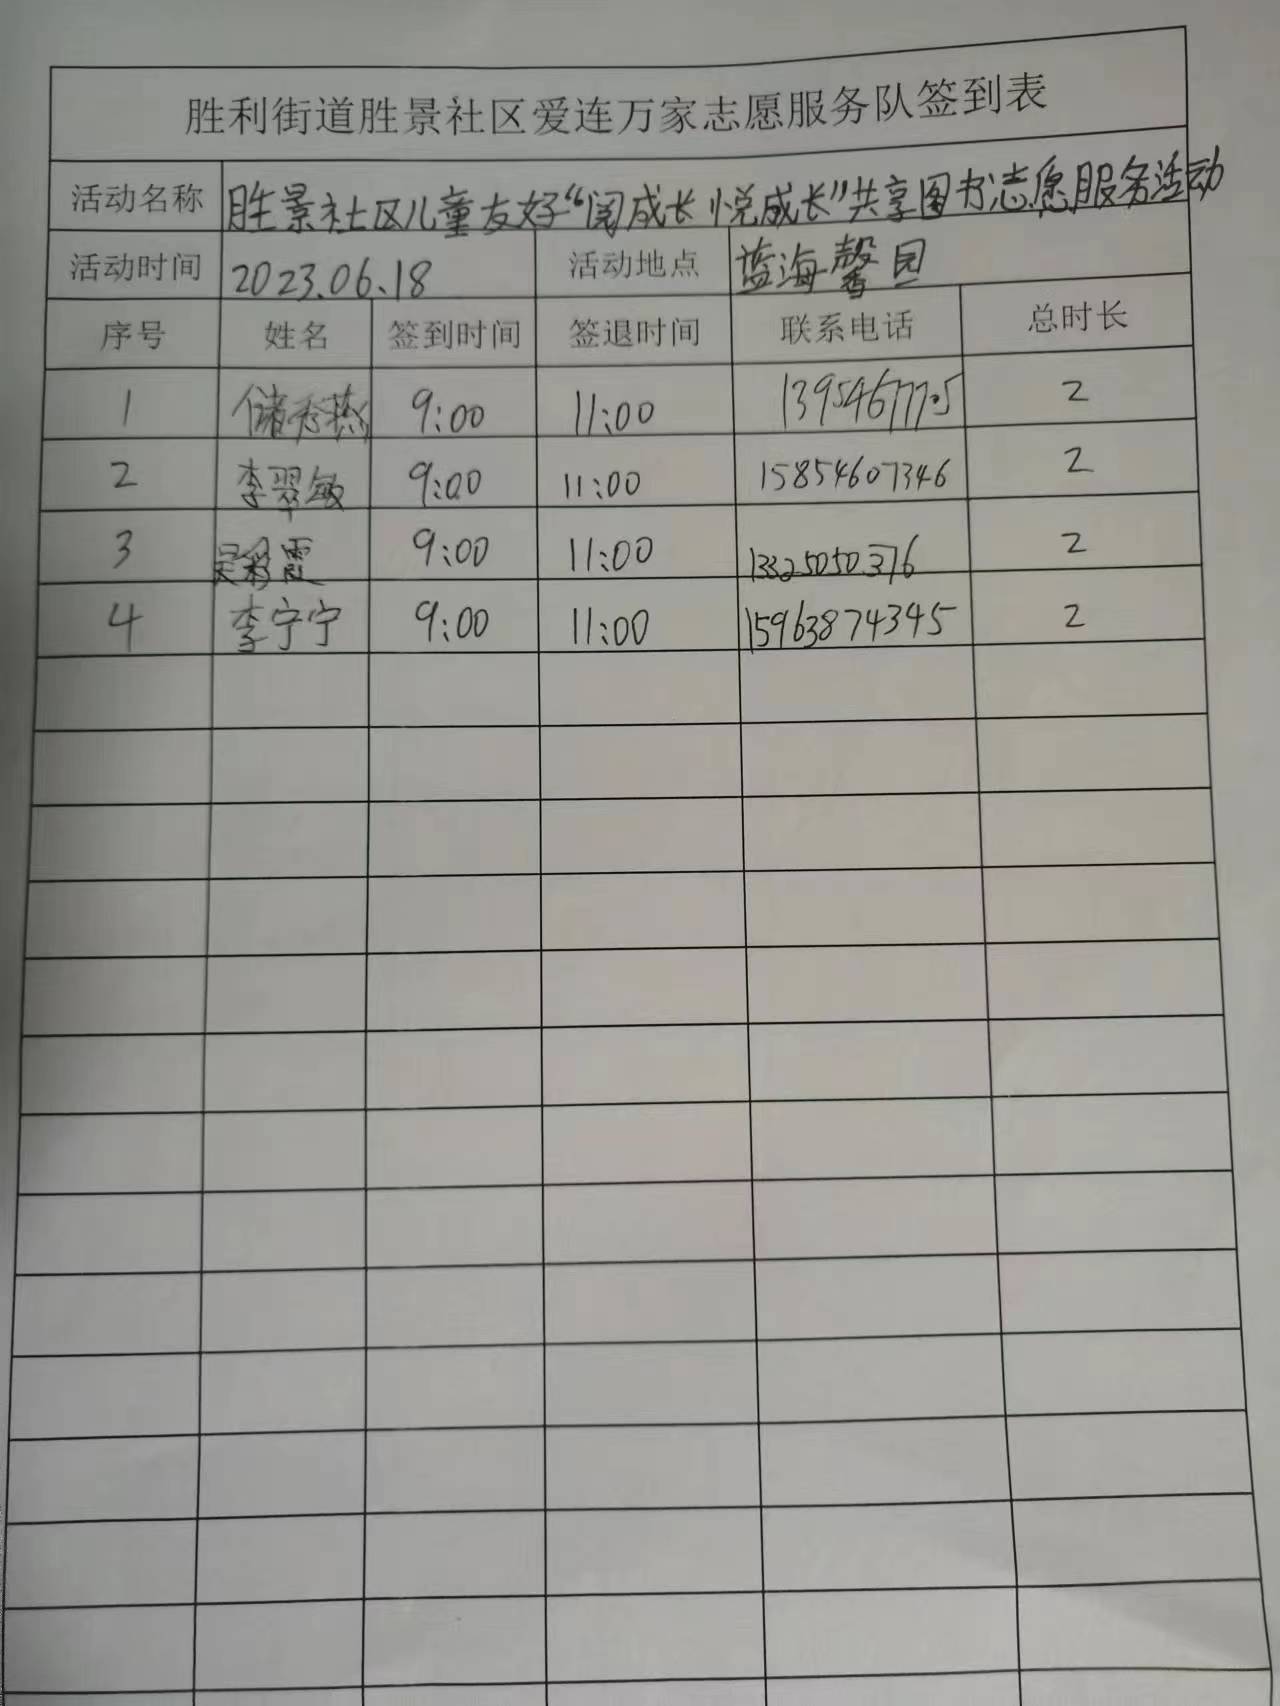 胜利街道胜景社区爱连万家志愿服务队签到表
活动名称 胜景社区儿童友好“阅成长 悦成长”共享图书志愿服务活动
活动时间 2023.06.18 活动地点 蓝海馨园
序号 姓名 签到时间 签退时间 联系电话 总时长
1 储秀燕 9:00 11:00 2
2 李翠敏 9:00 11:00 15854607346 2
3 吴彩霞 9:00 11:00 13325050376 2
4 李宁宁 9:00 11:00 15963874345 2